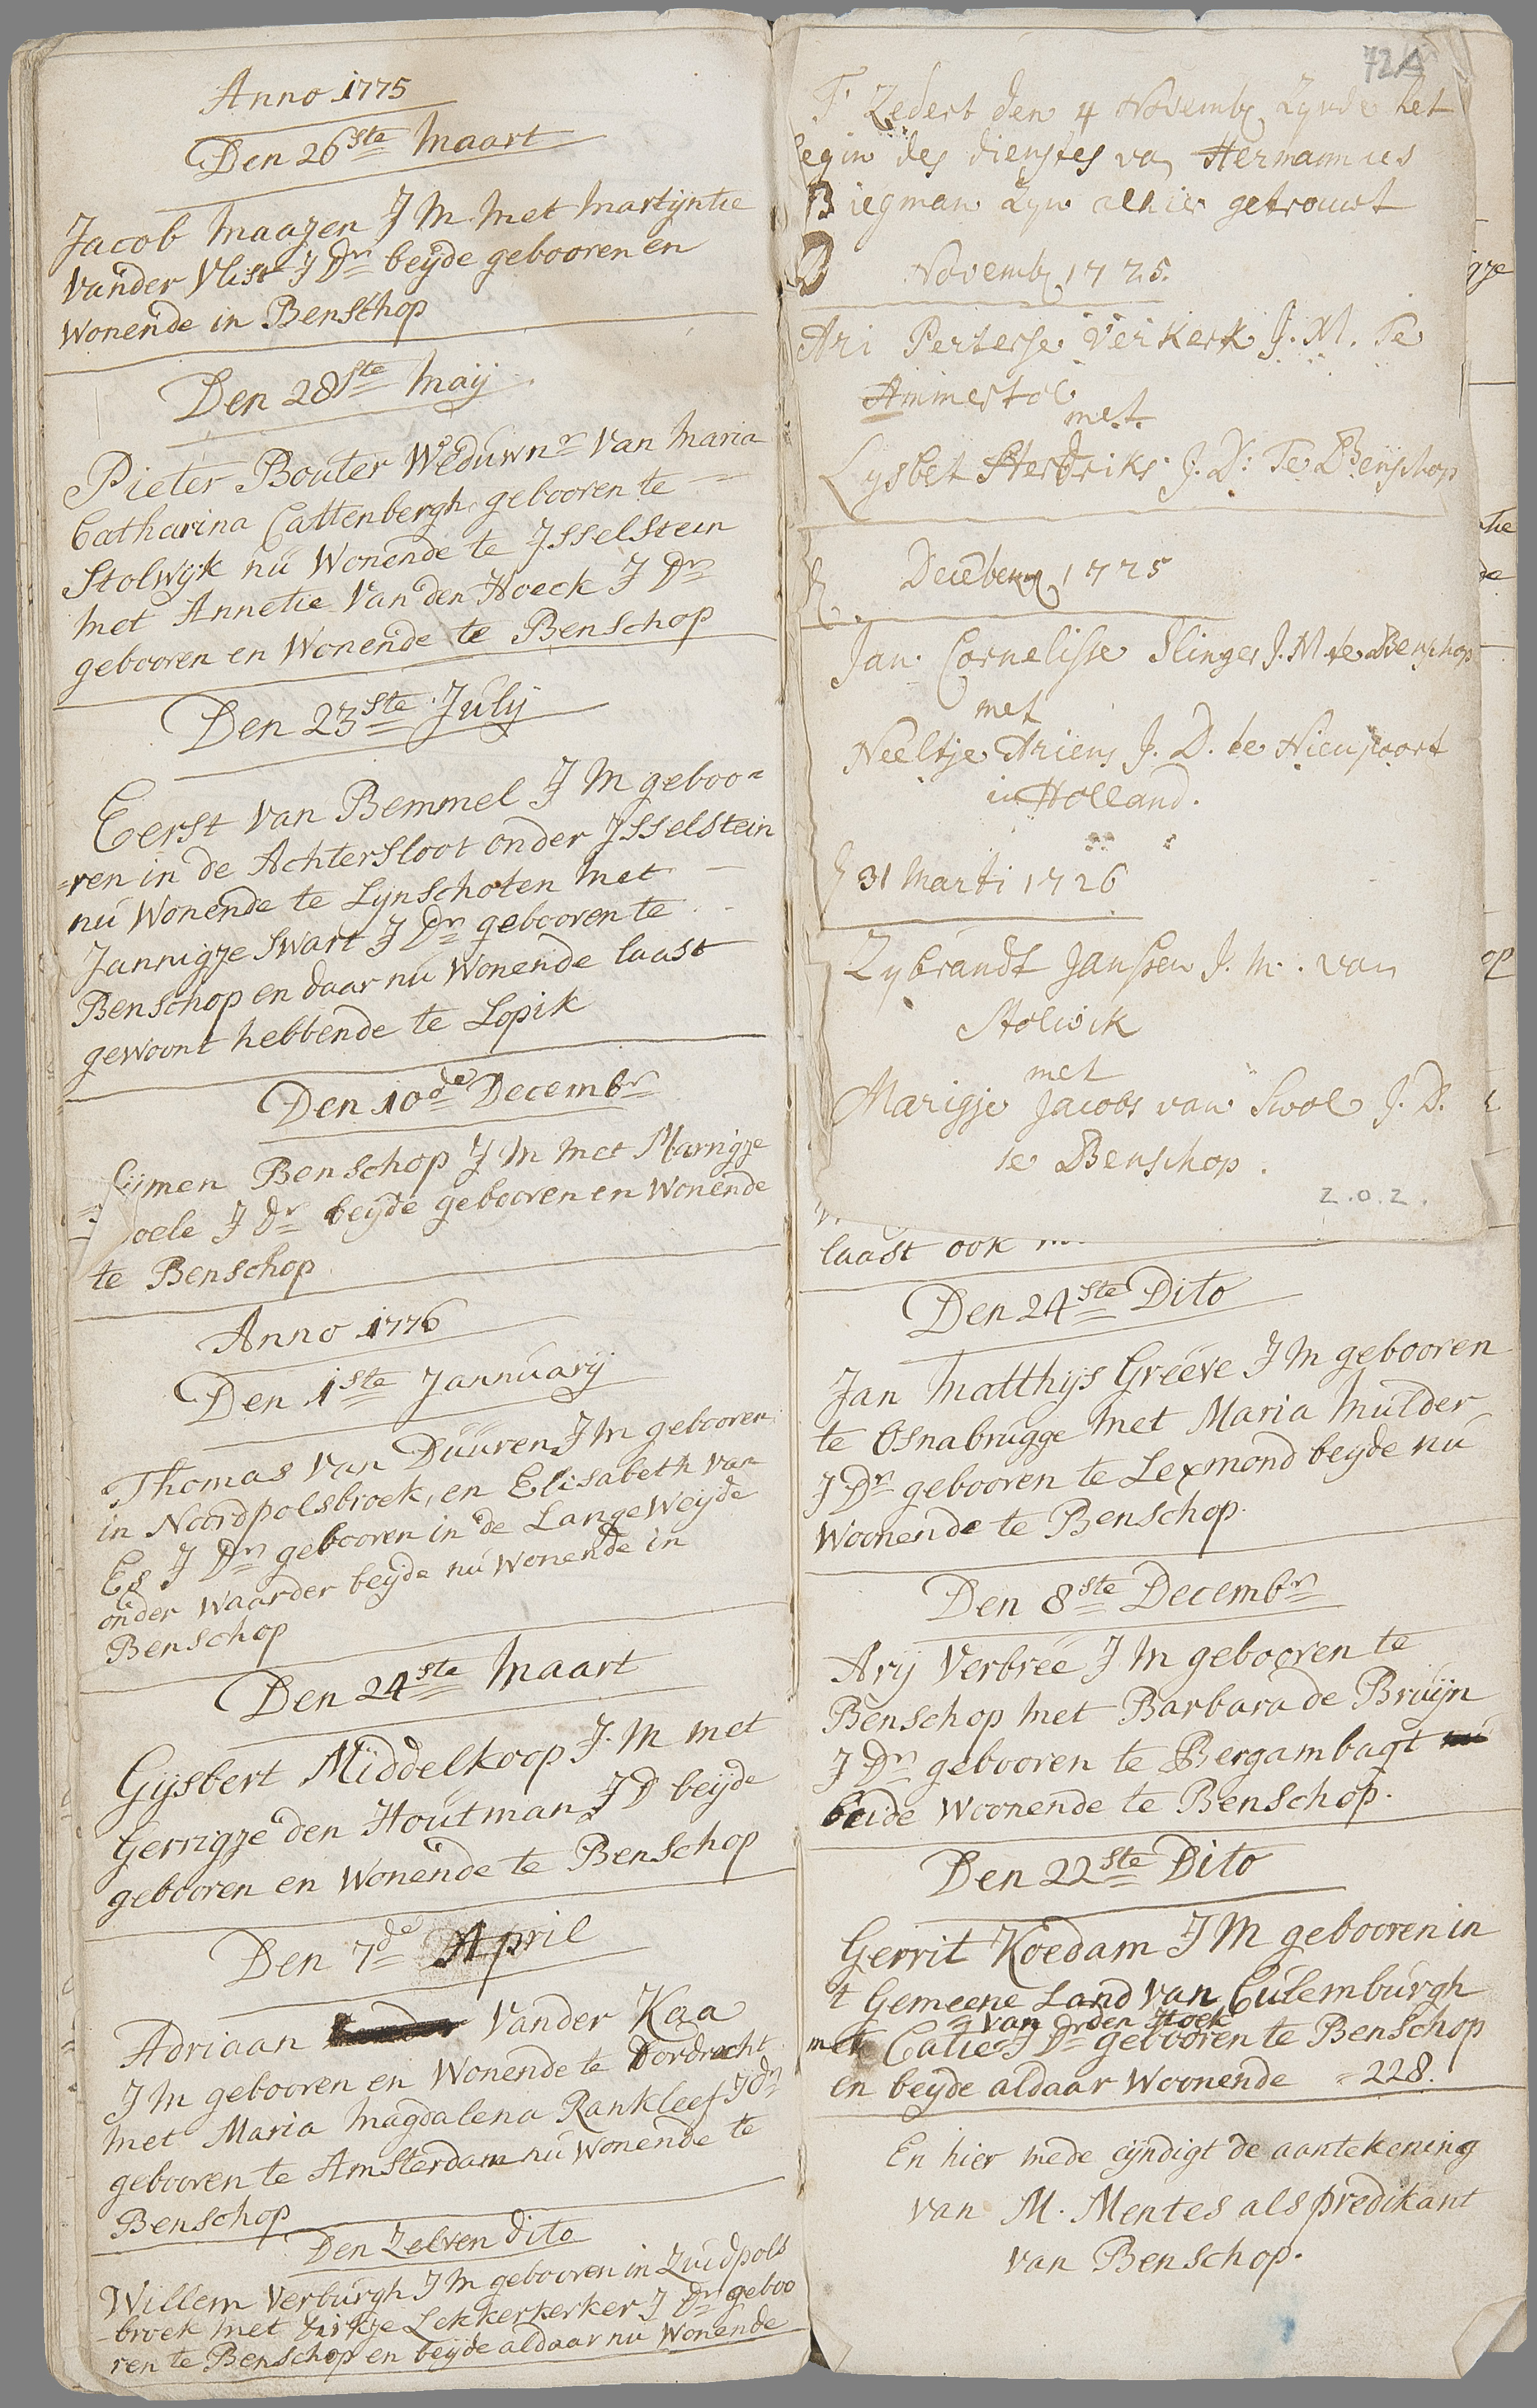 Anno 1775
Den 26ste Maart
Jacob Maazen J M met Martijntie
Vander Vlist J Dr beyde gebooren en
Wonende in Benschop
Den 28ste Maij
Pieter Bouter Weduwnr Van Maria
Catharina Cattenbergh gebooren te
Stolwijk nu Wonende te Jsselstein
Met Annetie Van den Hoeck J Dr
gebooren en Wonende te Benschop
Den 23ste July
Eerst Van Bemmel J M geboo=
=ren in de Achtersloot onder Jsselstein
nu Wonende te Lynschoten Met
Jannigje Swart J Dr gebooren te
Benschop en daar nu Wonende laast
gewoont hebbende te Lopik
Den 10de Decembr
Sijmen Benschop J M met Marrigje
oele J Dr beyde gebooren en Wonende
te Benschop
Anno 1776
Den 1ste Jannuarij
Thomas Van Duuren J M gebooren
in Noordpolsbroek, en Elisabeth van
Es J Dr gebooren in de Lange Weyde
onder Waarder beyde nu Wonende in
Benschop
Den 24ste Maart
Gijsbert Middelkoop J. M met
Gerrigje den Houtman J D beyde
gebooren en Wonende te Benschop
Den 7de April
Adriaan Vander Kaa
J M gebooren en Wonende te Dordrecht
met Maria Magdalena Rankleef J dr
gebooren te Amsterdam nu Wonende te
Benschop
Den Zelven dito
Willem Verburgh J M gebooren in Zuidpols
-broek met Dirkje Lekkerkerker J Dr geboo
ren te Benschop en beyde aldaar nu Wonende
72A
T' Zedert den 4 Novemb. Zynde het
begin des dienstes van Hermannus
Biegman Zyn alhier getrouwt
D Novemb 1725.
Ari Peterse Verkerk J. M. Te
Ammerstol
met
Lysbet Hendriks J. D: Te Benschop
Decebemb 1725
Jan Cornelisse Slinger J. M te Benschop
met
Neeltje Ariens J. D. te Nieupoort
in Holland.
31 Marti 1726
Zybrandt Janssen J. M. van
Stolwik
met
Marigje Jacobs van Swol J. D.
te Benschop.
Z.O.Z.
laast ook
Den 24ste Dito
Jan Matthijs Greeve J M gebooren
te Osnabrugge Met Maria Mulder
J Dr gebooren te Lexmond beyde nu
Woonende te Benschop.
Den 8ste Decembr
Arij Verbree J M gebooren te
Benschop Met Barbara de Bruijn
J Dr gebooren te Bergambagt
beide Woonende te Benschop.
Den 22ste Dito
Gerrit Koedam J M gebooren in
't Gemeene Land Van Culemburgh
van den Hoek
met Catie J Dr gebooren te Benschop
en beyde aldaar Woonende = 228.
En hier mede eyndigt de aantekening
van M. Mentes als predikant
van Benschop.